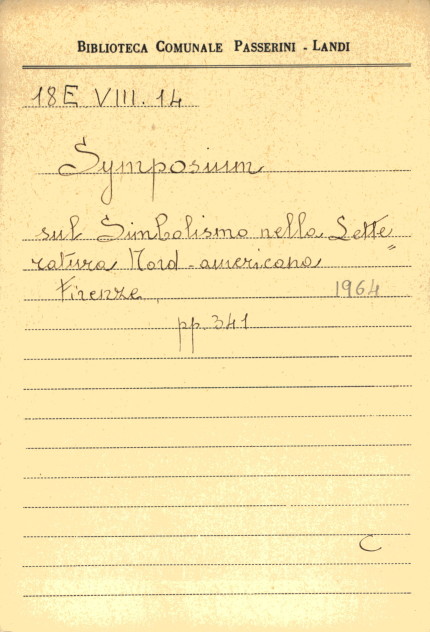 BIBLIOTECA COMUNALE PASSERINI - LANDI
18E VIII. 14
Symposium
sul Simbolismo nella Lette"
ratura Nord-americana
Firenze, 1964
pp. 341
C